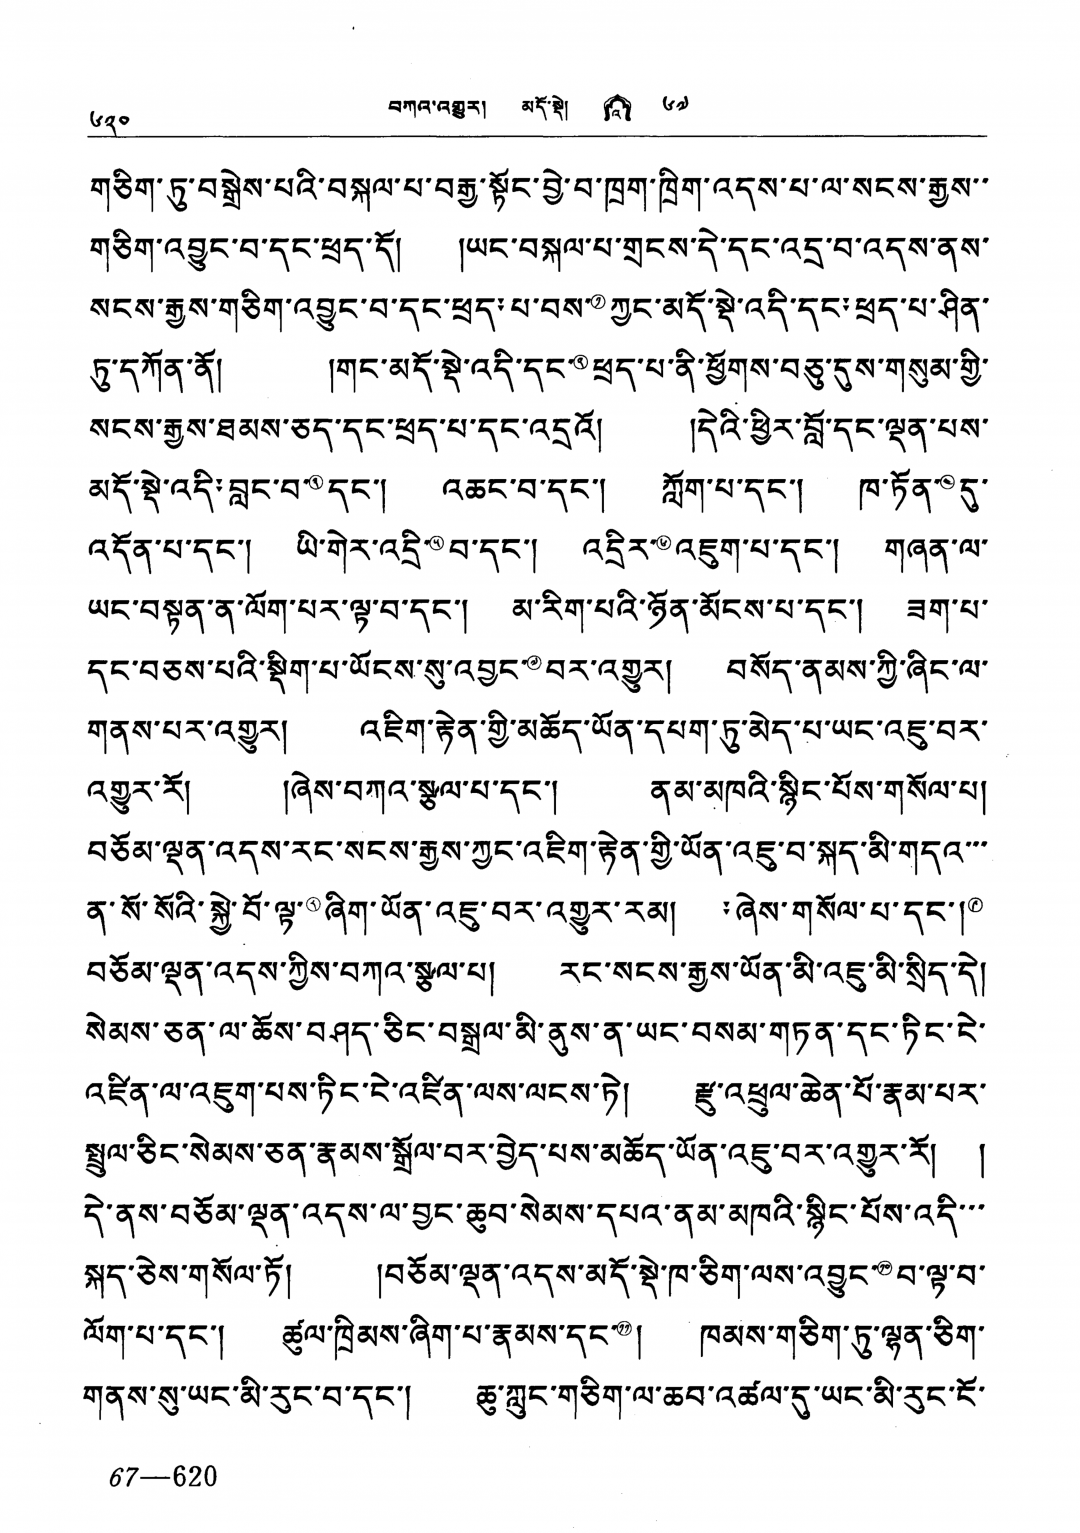 ༦༢༠ བཀའ་འགྱུར། མདོ་སྡེ། འ ༦༧
གཅིག་ཏུ་བསྒྲེས་པའི་བསྐལ་པ་བརྒྱ་སྟོང་བྱེ་བ་ཁྲག་ཁྲིག་འདས་པ་ལ་སངས་རྒྱས་་
གཅིག་འབྱུང་བ་དང་ཕྲད་དོ། །ཡང་བསྐལ་པ་གྲངས་དེ་དང་འདྲ་བ་འདས་ནས་
སངས་རྒྱས་གཅིག་འབྱུང་བ་དང་ཕྲད་༔པ་བས་①ཀྱང་མདོ་སྡེ་འདི་དང་༔ཕྲད་པ་ཤིན་
ཏུ་དཀོན་ནོ། །གང་མདོ་སྡེ་འདི་དང་②ཕྲད་པ་ནི་ཕྱོགས་བཅུ་དུས་གསུམ་གྱི་
སངས་རྒྱས་ཐམས་ཅད་དང་ཕྲད་པ་དང་འདྲའོ། །དེའི་ཕྱིར་བློ་དང་ལྡན་པས་
མདོ་སྡེ་འདི་༔བླང་བ་③དང་། འཆང་བ་དང་། ཀློག་པ་དང་། ཁ་ཏོན་④དུ་
འདོན་པ་དང་། ཡི་གེར་འདྲི་⑤བ་དང་། འདྲིར་⑥འཇུག་པ་དང་། གཞན་ལ་
ཡང་བསྟན་ན་ལོག་པར་ལྟ་བ་དང་། མ་རིག་པའི་ཉོན་མོངས་པ་དང་། ཟག་པ་
དང་བཅས་པའི་སྡིག་པ་ཡོངས་སུ་འབྱང་⑦བར་འགྱུར། བསོད་ནམས་ཀྱི་ཞིང་ལ་
གནས་པར་འགྱུར། འཇིག་རྟེན་གྱི་མཆོད་ཡོན་དཔག་ཏུ་མེད་པ་ཡང་འཇུ་བར་
འགྱུར་རོ། །ཞེས་བཀའ་སྩལ་པ་དང་། ནམ་མཁའི་སྙིང་པོས་གསོལ་པ།
བཅོམ་ལྡན་འདས་རང་སངས་རྒྱས་ཀྱང་འཇིག་རྟེན་གྱི་ཡོན་འཇུ་བ་སྐད་མི་གདའ་་་
ན་སོ་སོའི་སྐྱེ་བོ་ལྟ་⑧ཞིག་ཡོན་འཇུ་བར་འགྱུར་རམ། ༔ཞེས་གསོལ་པ་དང་།⑨
བཅོམ་ལྡན་འདས་ཀྱིས་བཀའ་སྩལ་པ། རང་སངས་རྒྱས་ཡོན་མི་འཇུ་མི་སྲིད་དེ།
སེམས་ཅན་ལ་ཆོས་བཤད་ཅིང་བསྒྲལ་མི་ནུས་ན་ཡང་བསམ་གཏན་དང་ཏིང་ངེ་
འཛིན་ལ་འཇུག་པས་ཏིང་ངེ་འཛིན་ལས་ལངས་ཏེ། རྫུ་འཕྲུལ་ཆེན་པོ་རྣམ་པར་
སྤྲུལ་ཅིང་སེམས་ཅན་རྣམས་སྒྲོལ་བར་བྱེད་པས་མཆོད་ཡོན་འཇུ་བར་འགྱུར་རོ། །
དེ་ནས་བཅོམ་ལྡན་འདས་ལ་བྱང་ཆུབ་སེམས་དཔའ་ནམ་མཁའི་སྙིང་པོས་འདི་་་
སྐད་ཅེས་གསོལ་ཏོ། །བཅོམ་ལྡན་འདས་མདོ་སྡེ་ཁ་ཅིག་ལས་འབྱུང་⑩བ་ལྟ་བ་
ལོག་པ་དང་། ཚུལ་ཁྲིམས་ཞིག་པ་རྣམས་དང་⑪། ཁམས་གཅིག་ཏུ་ལྷན་ཅིག་
གནས་སུ་ཡང་མི་རུང་བ་དང་། ཆུ་ཀླུང་གཅིག་ལ་ཆབ་འཚལ་དུ་ཡང་མི་རུང་ངོ་
67—620